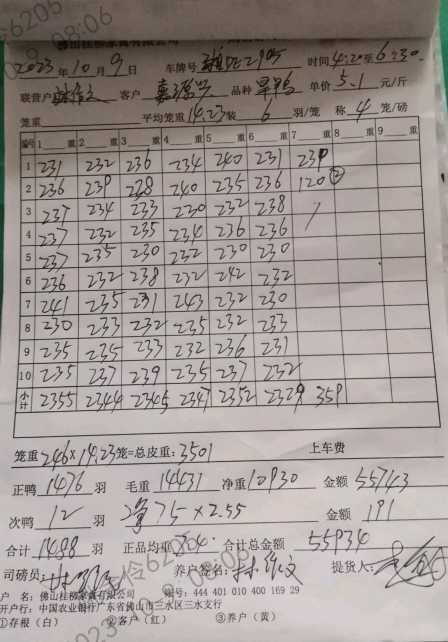 佛山桂柳家禽有限公司
2023年10月9日 车牌号 2905 时间4:20至6:30
联营户 客户 品种 单价5.1元/斤
笼重 平均笼重14.23装6羽/笼 称4笼/磅
编号 1 重 2 重 3 重 4 重 5 重 6 重 7 重 8 重 9 重
1 231 232 236 234 240 231 239
2 236 239 228 240 235 236 120②
3 237 234 233 230 232 238 /
4 237 232 235 234 236 236
5 237 235 230 232 230 230
6 236 232 238 232 242 232
7 241 235 231 243 232 230
8 230 233 232 235 232 233
9 235 235 233 232 236 231
10 235 237 239 235 237 232
小计 2355 2344 2345 2347 2352 2329 359
笼重246×14.23笼=总皮重:3501 上车费
正鸭1476羽 毛重14431 净重10930 金额55743
次鸭12羽 75×2.55 金额191
合计1488羽 正品均重7.4 合计总金额55934
司磅员: 养户签名: 提货人:
户 名:佛山桂柳家禽有限公司 账号:444 401 010 400 169 29
开户行:中国农业银行广东省佛山市三水区三水支行
①存根(白) ②客户(红) ③养户(黄)